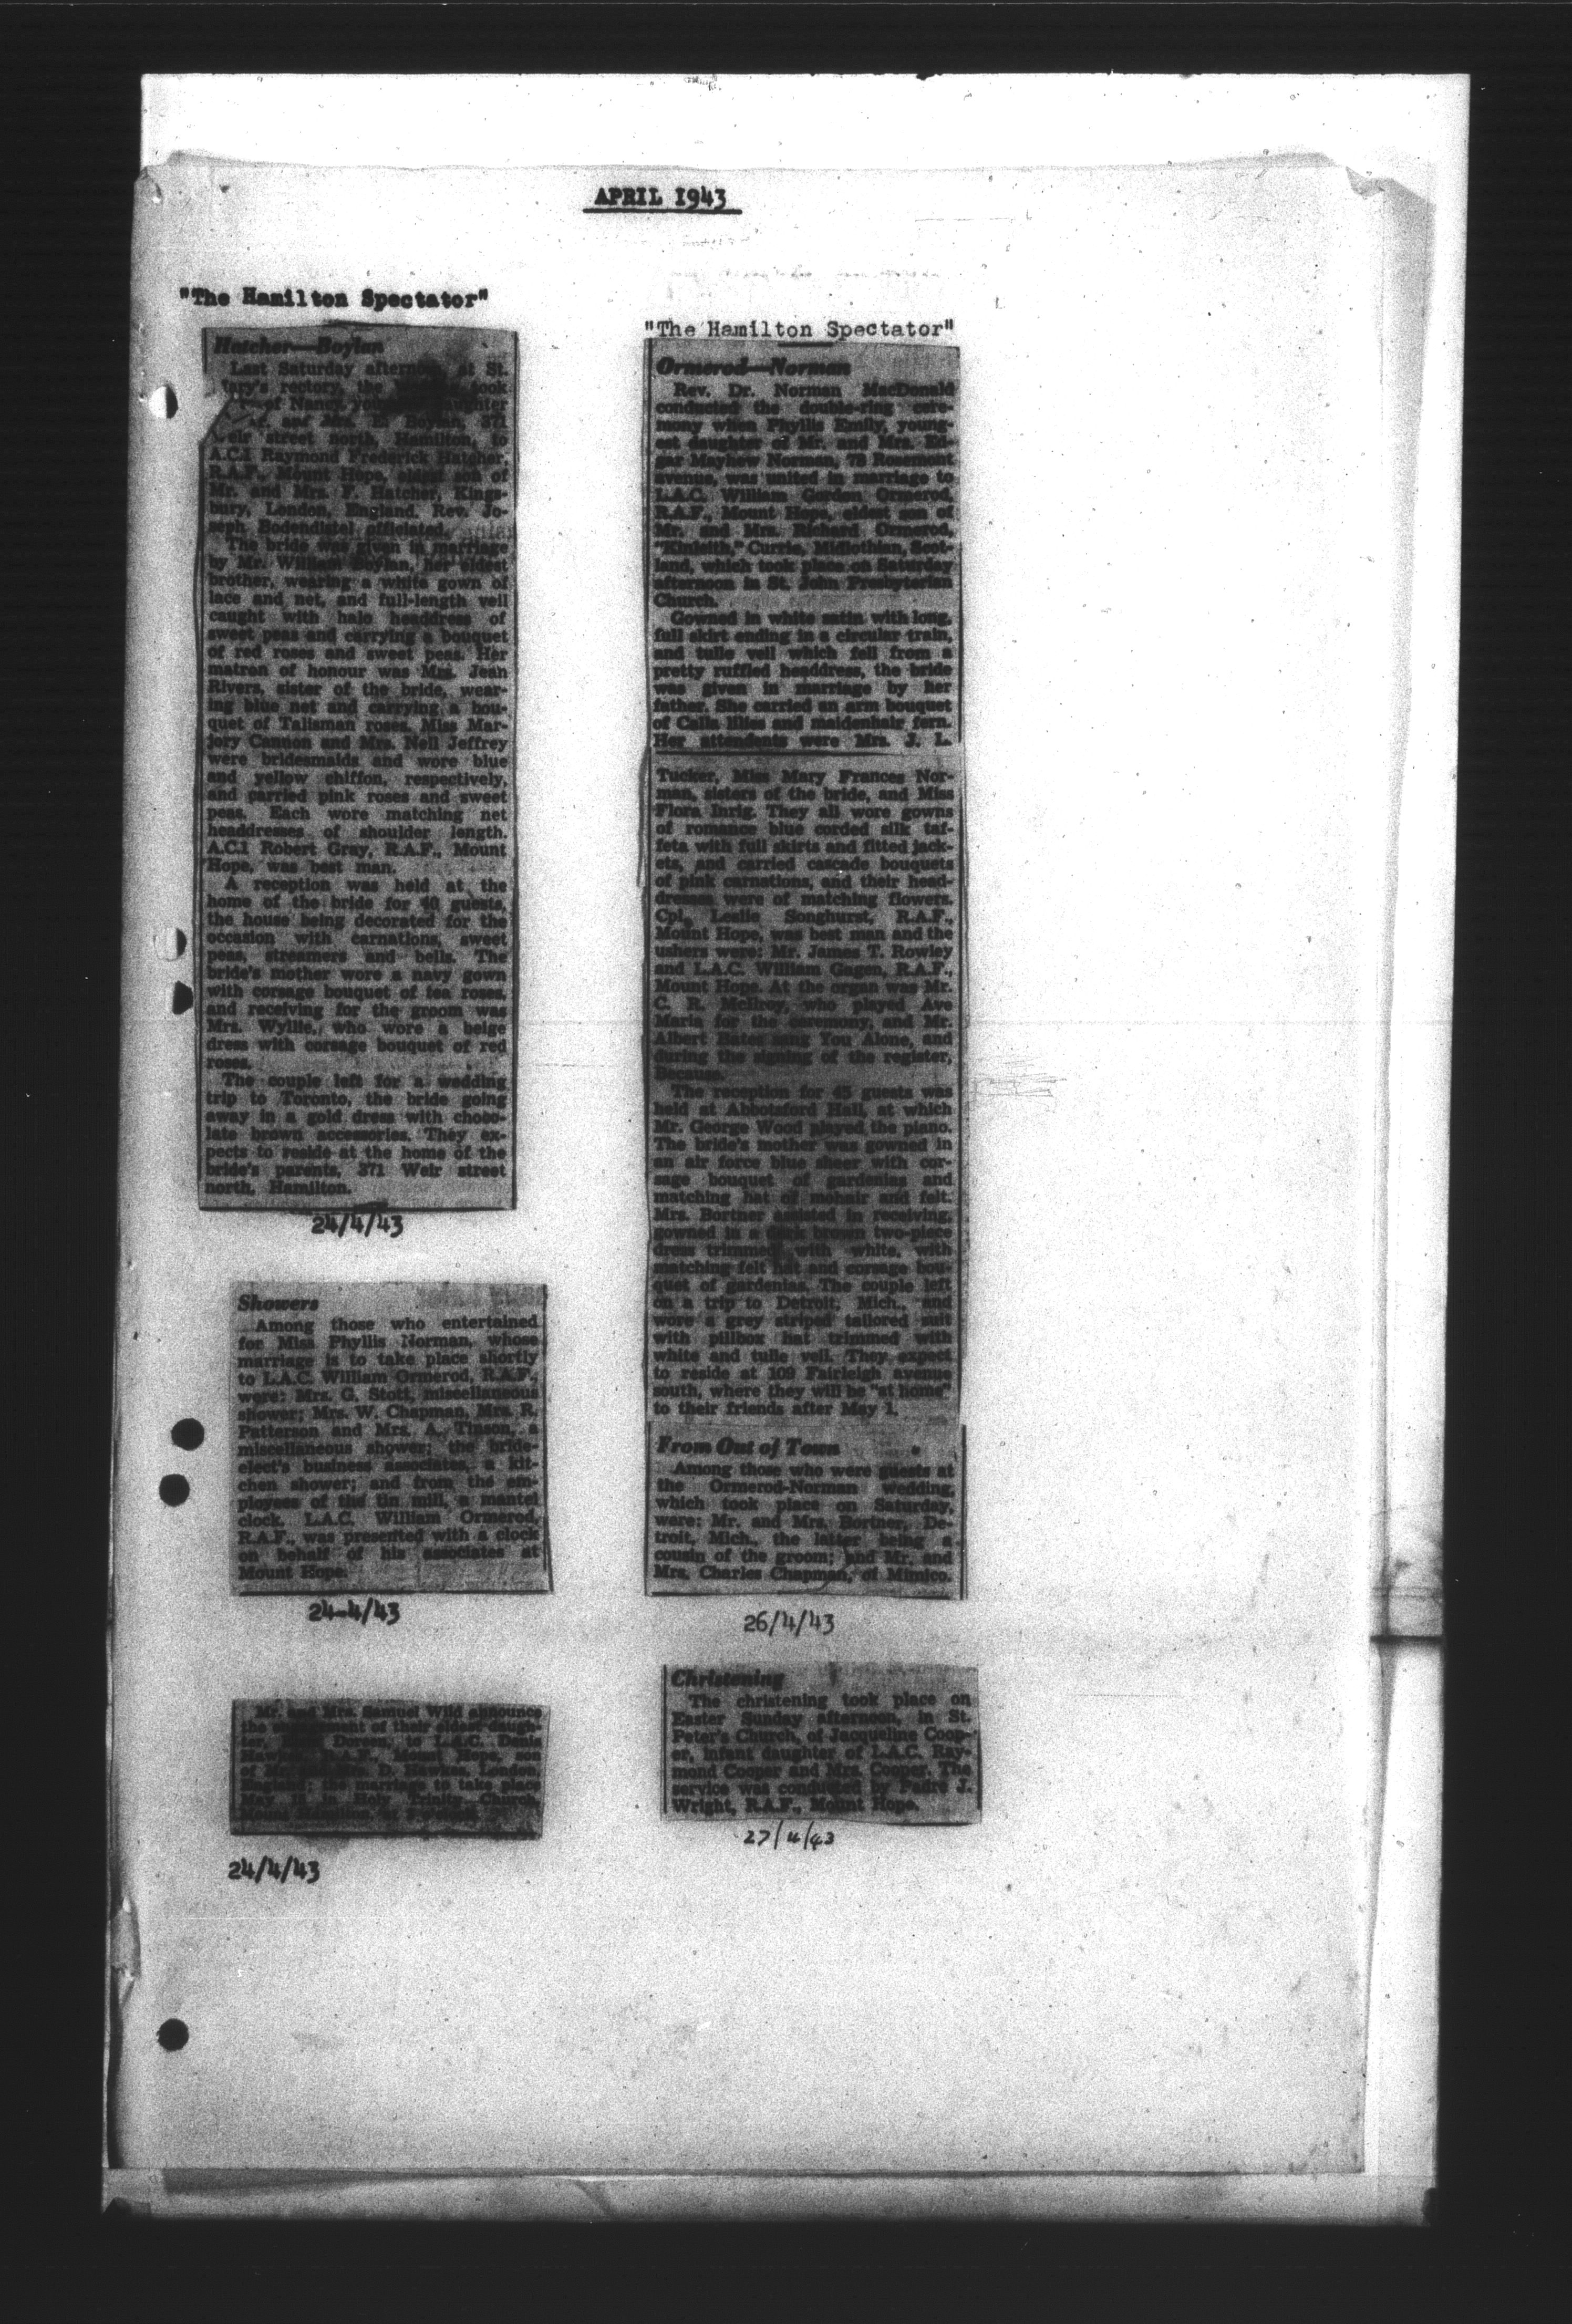 APRIL 1943
"The Hamilton Spectator"
Hatcher—Boylan
Last Saturday afternoon, at St.
Mary's rectory, the took
of Nancy, daughter
and Mrs. E. Boylan, 371
Weir street north, Hamilton, to
A.C.1 Raymond Frederick Hatcher,
R.A.F., Mount Hope, eldest son of
Mr. and Mrs. F. Hatcher, Kings-
bury, London, England. Rev. Jo-
seph Bodendistel officiated.
The bride was given in marriage
by Mr. William Boylan, her eldest
brother, wearing a white gown of
lace and net, and full-length veil
caught with halo headdress of
sweet peas and carrying a bouquet
of red roses and sweet peas. Her
matron of honour was Mrs. Jean
Rivers, sister of the bride, wear-
ing blue net and carrying a bou-
quet of Talisman roses. Miss Mar-
jory Cannon and Mrs. Nell Jeffrey
were bridesmaids and wore blue
and yellow chiffon, respectively,
and carried pink roses and sweet
peas. Each wore matching net
headdresses of shoulder length.
A.C.1 Robert Gray, R.A.F., Mount
Hope, was best man.
A reception was held at the
home of the bride for 40 guests,
the house being decorated for the
occasion with carnations, sweet
peas, streamers and bells. The
bride's mother wore a navy gown
with corsage bouquet of tea roses,
and receiving for the groom was
Mrs. Wyllie, who wore a beige
dress with corsage bouquet of red
roses.
The couple left for a wedding
trip to Toronto, the bride going
away in a gold dress with choco-
late brown accessories. They ex-
pects to reside at the home of the
bride's parents, 371 Weir street
north, Hamilton.
24/4/43
Showers
Among those who entertained
for Miss Phyllis Norman, whose
marriage is to take place shortly
to L.A.C. William Ormerod, R.A.F.,
were: Mrs. G. Stott, miscellaneous
shower; Mrs. W. Chapman, Mrs. R.
Patterson and Mrs. A. Tinson, a
miscellaneous shower; the bride-
elect's business associates, a kit-
chen shower; and from the em-
ployees of the tin mill, a mantel
clock. L.A.C. William Ormerod,
R.A.F., was presented with a clock
on behalf of his associates at
Mount Hope.
24-4/43
Mr. and Mrs. Samuel Wild announce
the engagement of their eldest daugh-
ter, Doreen, to L.A.C. Denis
Hawkes, R.A.F., Mount Hope, son
of Mr. and Mrs. D. Hawkes, London,
England; the marriage to take place
May 15 in Holy Trinity Church,
Mount Hamilton, at
24/4/43
"The Hamilton Spectator"
Ormerod—Norman
Rev. Dr. Norman MacDonald
conducted the double-ring cere-
mony when Phyllis Emily, young-
est daughter of Mr. and Mrs. Ed-
gar Mayhew Norman, 78 Rosemont
avenue, was united in marriage to
L.A.C. William Gordon Ormerod,
R.A.F., Mount Hope, eldest son of
Mr. and Mrs. Richard Ormerod,
"Kinleith," Currie, Midlothian, Scot-
land, which took place on Saturday
afternoon in St. John Presbyterian
Church.
Gowned in white satin with long,
full skirt ending in a circular train,
and tulle veil which fell from a
pretty ruffled headdress, the bride
was given in marriage by her
father. She carried an arm bouquet
of Calla lilies and maidenhair fern.
Her attendants were Mrs. J. L.
Tucker, Miss Mary Frances Nor-
man, sisters of the bride, and Miss
Flora Inrig. They all wore gowns
of romance blue corded silk taf-
feta with full skirts and fitted jack-
ets, and carried cascade bouquets
of pink carnations, and their head-
dresses were of matching flowers.
Cpl. Leslie Songhurst, R.A.F.,
Mount Hope, was best man and the
ushers were: Mr. James T. Rowley
and L.A.C. William Gagen, R.A.F.,
Mount Hope. At the organ was Mr.
C. R. McIlroy, who played Ave
Maria for the ceremony, and Mr.
Albert Bates sang You Alone, and
during the signing of the register,
Because.
The reception for 45 guests was
held at Abbotsford Hall, at which
Mr. George Wood played the piano.
The bride's mother was gowned in
an air force blue sheer with cor-
sage bouquet of gardenias and
matching hat of mohair and felt.
Mrs. Bortner assisted in receiving,
gowned in a dark brown two-piece
dress trimmed with white, with
matching felt hat and corsage bou-
quet of gardenias. The couple left
on a trip to Detroit, Mich., and
wore a grey striped tailored suit
with pillbox hat trimmed with
white and tulle veil. They expect
to reside at 109 Fairleigh avenue
south, where they will be "at home"
to their friends after May 1.
From Out of Town
Among those who were guests at
the Ormerod-Norman wedding,
which took place on Saturday,
were: Mr. and Mrs. Bortner, De-
troit, Mich., the latter being a
cousin of the groom; and Mr. and
Mrs. Charles Chapman, of Mimico.
26/4/43
Christening
The christening took place on
Easter Sunday afternoon, in St.
Peter's Church, of Jacqueline Coop-
er, infant daughter of L.A.C. Ray-
mond Cooper and Mrs. Cooper. The
service was conducted by Padre J.
Wright, R.A.F., Mount Hope.
27/4/43